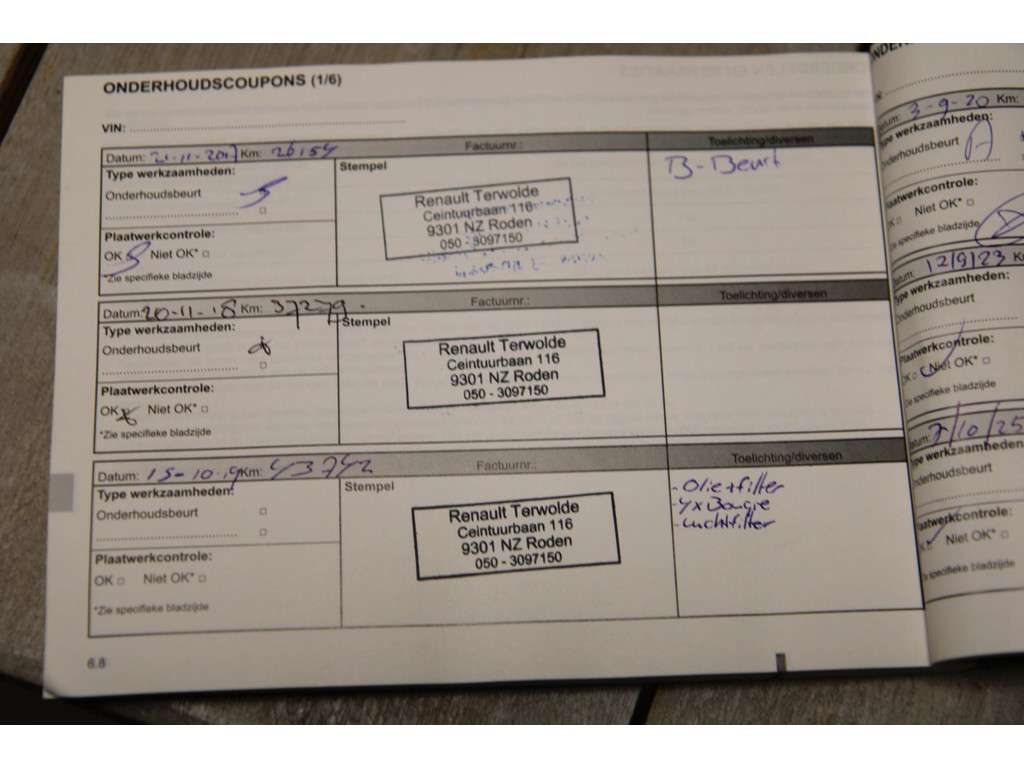 ONDERHOUDSCOUPONS (1/6)
VIN:
Datum: 21-11-2017 Km: Factuurnr.: Toelichting/diversen
Type werkzaamheden: Stempel B-Beurt
Onderhoudsbeurt
Plaatwerkcontrole:
OK Niet OK*
*Zie specifieke bladzijde
Renault Terwolde
Ceintuurbaan 116
9301 NZ Roden
050 - 3097150
Datum: 20-11-'18 Km: 37279. Factuurnr.: Toelichting/diversen
Type werkzaamheden: Stempel
Onderhoudsbeurt
Plaatwerkcontrole:
OK Niet OK*
*Zie specifieke bladzijde
Renault Terwolde
Ceintuurbaan 116
9301 NZ Roden
050 - 3097150
Datum: 15-10-19 Km: 43742 Factuurnr.: Toelichting/diversen
Type werkzaamheden: Stempel
Onderhoudsbeurt
Plaatwerkcontrole:
OK Niet OK*
*Zie specifieke bladzijde
Renault Terwolde
Ceintuurbaan 116
9301 NZ Roden
050 - 3097150
- Olie+filter
- 4x Bougie
- Luchtfilter
6.8
3-9-20 Km:
ype werkzaamheden:
nderhoudsbeurt
laatwerkcontrole:
Niet OK*
specifieke bladzijde
12/9/23
Type werkzaamheden:
Onderhoudsbeurt
Plaatwerkcontrole:
Niet OK*
specifieke bladzijde
7/10/25
Type werkzaamheden
nderhoudsbeurt
aatwerkcontrole:
Niet OK*
specifieke bladzijde